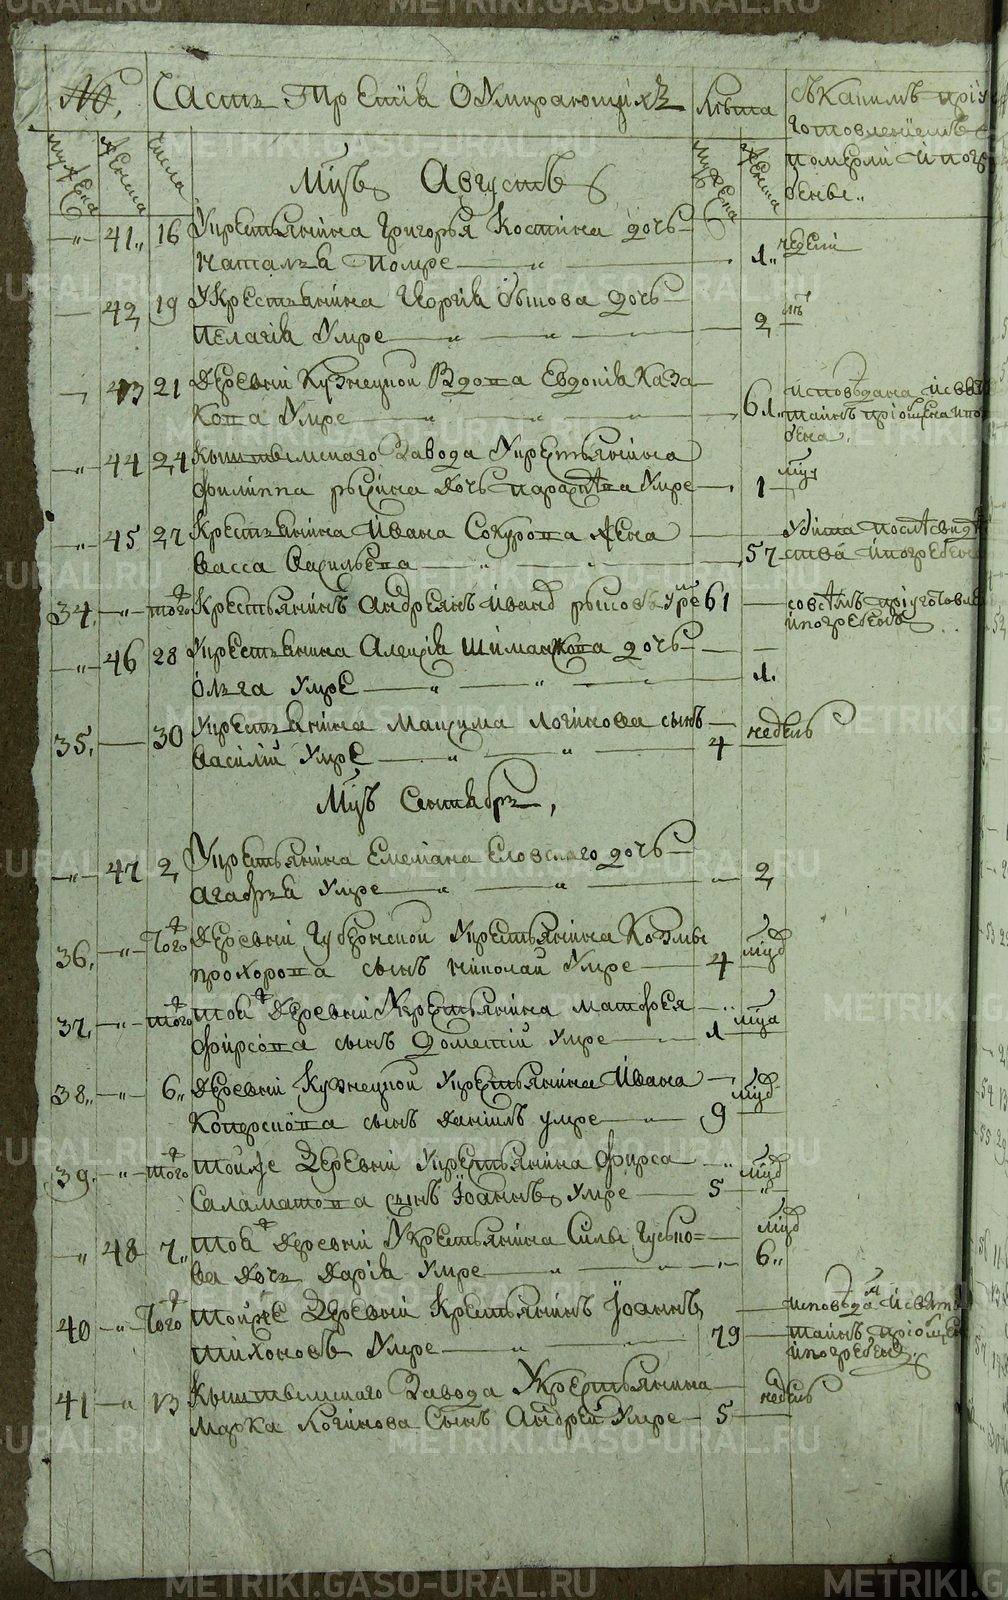 №. Часть Третiя О Умирающихъ Лѣта съ какимъ прiу
готовленiемъ
мужеска женска числа Мцъ Августъ мужеска женска померли и погре
бенье..
" 41 16 У крестьянина Григорья Костина дочь
Наталья Помре " 1 недели
42 19 У крестьянина Георгiя дочь
Пелагiя Умре " 2 мц
43 21 Деревни Кузнецкой Вдова Евдокiя Каза
кова Умре 61 исповѣдана и свя
тайнъ прiобщена и погре
бена.
" 44 24 Кыштымскаго Завода У крестьянина
Филиппа дочь Параскѣва Умре 1
" 45 27 Крестьянина Ивана Сокурова жена Убита послѣ свидѣ
Васса Васильева " 57 ства и погребена
34. " того Крестьянинъ Андреянъ Иванд Умре 61 совсѣмъ прiуготовле
и погребенъ
" 46 28 У крестьянина Алексiя дочь
Ольга Умре " 1.
35. 30 У крестьянина Максима Логинова сынъ недель
Василiй Умре " 4
Мцъ Сентябрь,
" 47 2 У крестьянина Емелiана Еловскаго дочь
Агафья Умре " 2
36. " Того Деревни Губернской У крестьянина Козмы
Прохорова сынъ Николай Умре 4 мцд
37. " того той Деревни У крестьянина Матфея мцa
Фирсова сынъ Дометiй Умре 1
38. " 6 Деревни Кузнецкой У крестьянина Ивана мцд
сынъ Данiилъ умре " 9
39. " того тойже Деревни У крестьянина Фирса мцд
Саламатова сынъ Iоаннъ Умре 5 "
" 48 7 той Деревни У крестьянина Силы Гусько= мцд
ва дочь Дарiя Умре " 6
40 " Того тойже Деревни Крестьянинъ Iоаннъ исповѣдан и свят
Тихоновъ Умре " 79 тайнъ прiобщен
и погребенъ.
41 " 13 Кыштымскаго Завода У крестьянина недель
Марка Логинова Сынъ Андрей Умре 5
METRIKI.GASO-URAL.RU